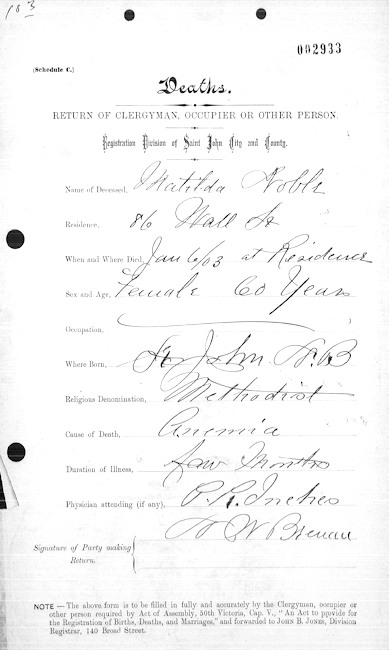 183
002933
(Schedule C.)
Deaths.
RETURN OF CLERGYMAN, OCCUPIER OR OTHER PERSON.
Registration Division of Saint John City and County.
Name of Deceased, Matilda Noble
Residence, 86 Wall St
When and Where Died, Jan 6/03 at Residence
Sex and Age, Female 60 Years
Occupation,
Where Born, St John N.B
Religious Denomination, Methodist
Cause of Death, Anemia
Duration of Illness, few Months
Physician attending (if any), P. R. Inches
N W Brenan
Signature of Party making
Return.
NOTE — The above form is to be filled in fully and accurately by the Clergyman, occupier or
other person required by Act of Assembly, 50th Victoria, Cap. V., "An Act to provide for
the Registration of Births, Deaths, and Marriages," and forwarded to JOHN B. JONES, Division
Registrar, 140 Broad Street.